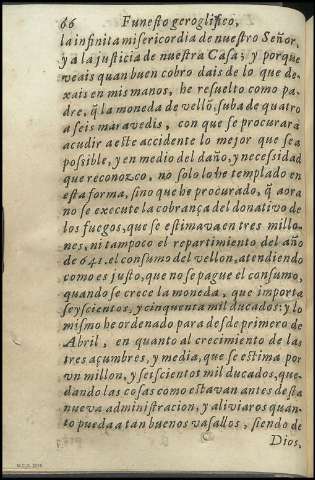 66 Funesto geroglifico,
la infinita misericordia de nuestro Señor,
y a la justicia de nuestra Casa; y porque
veais quan buen cobro dais de lo que de-
xais en mis manos, he resuelto como pa-
dre, q̃ la moneda de vellõ, suba de quatro
a seis maravedis, con que se procurarà
acudir a este accidente lo mejor que sea
possible, y en medio del daño, y necessidad
que reconozco, no solo lo he templado en
esta forma, sino que he procurado, q̃ aora
no se execute la cobrança del donativo de
los fuegos, que se estimava en tres millo-
nes, ni tampoco el repartimiento del año
de 641. el consumo del vellon, atendiendo
como es justo, que no se pague el consumo,
quando se crece la moneda, que importa
seyscientos, y cinquenta mil ducados: y lo
mismo he ordenado para desde primero de
Abril, en quanto al crecimiento de las
tres açumbres, y media, que se estima por
vn millon, y seiscientos mil ducados, que-
dando las cosas como estavan antes desta
nueva administracion, y aliviaros quan-
to pueda a tan buenos vasallos, siendo de
Dios,